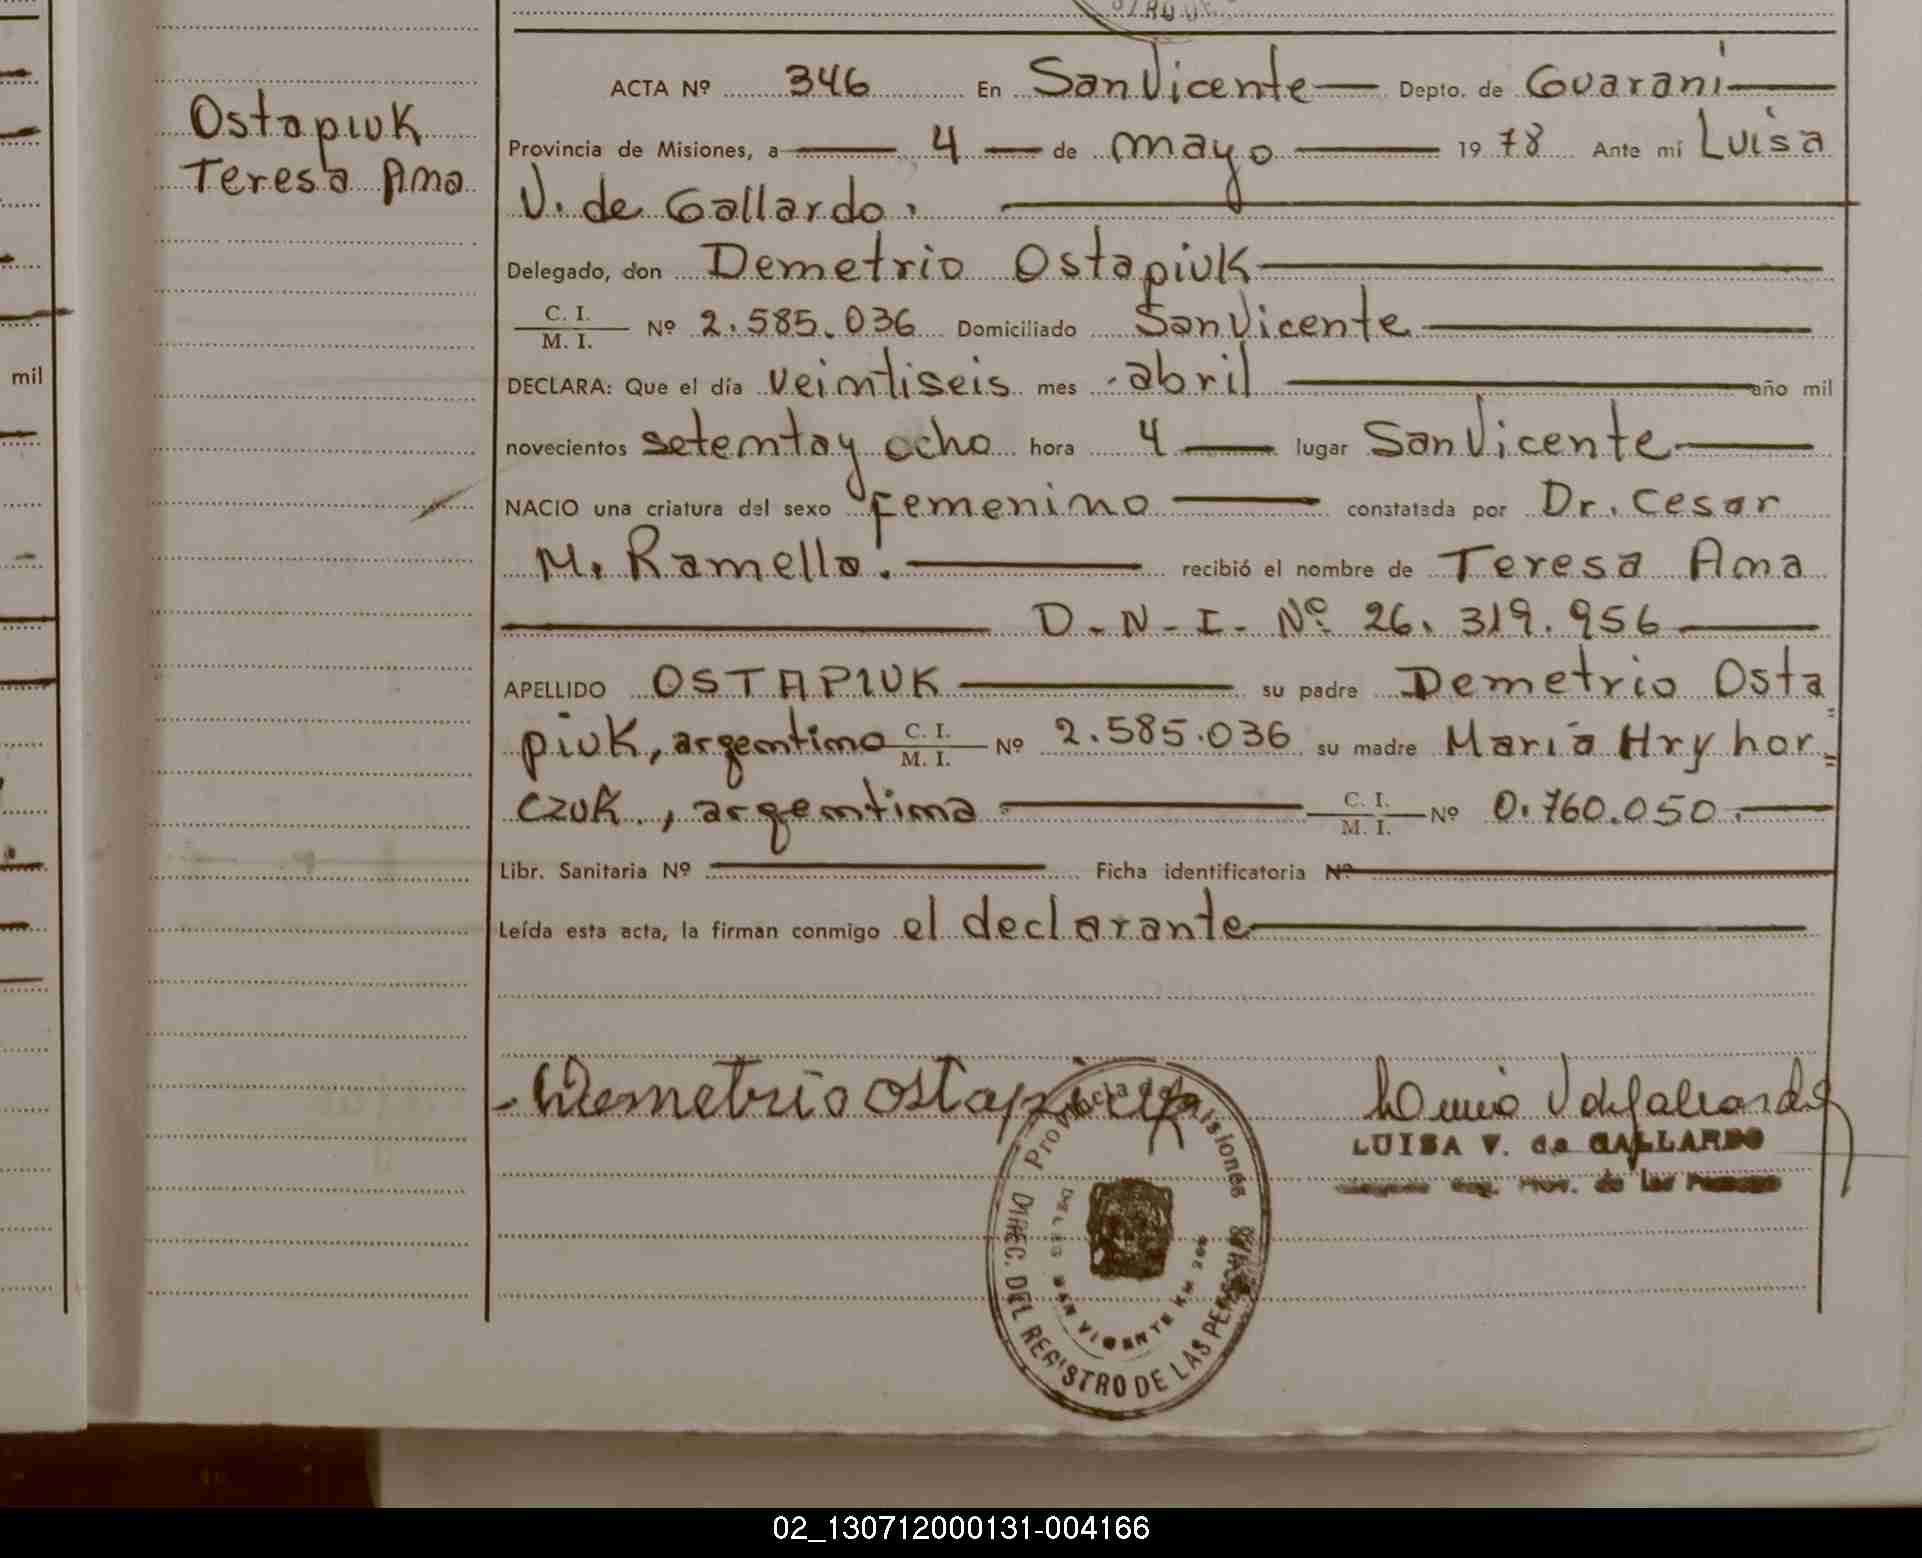 Ostapiuk
Teresa Ana
mil
ACTA Nº 346 En San Vicente Depto. de Guaraní
Provincia de Misiones, a 4 de mayo 1978 Ante mí Luisa
V. de Gallardo.
Delegado, don Demetrio Ostapiuk
C. I.
M. I. Nº 2.585.036 Domiciliado San Vicente
DECLARA: Que el día veintiseis mes abril año mil
novecientos setenta y ocho hora 4 lugar San Vicente
NACIO una criatura del sexo femenino constatada por Dr. Cesar
M. Ramello. recibió el nombre de Teresa Ana
D-N-I- Nº 26.319.956
APELLIDO OSTAPIUK su padre Demetrio Osta=
piuk, argentino C. I.
M. I. Nº 2.585.036 su madre María Hryhor=
czuk., argentina C. I.
M. I. Nº 0.760.050.
Libr. Sanitaria Nº Ficha identificatoria Nº
Leída esta acta, la firman conmigo el declarante
Demetrio Ostapiuk
LUISA V. de GALLARDO
Provincia de Misiones
DIREC. DEL REGISTRO DE LAS PERSONAS
SAN VICENTE KM 266
02_130712000131-004166